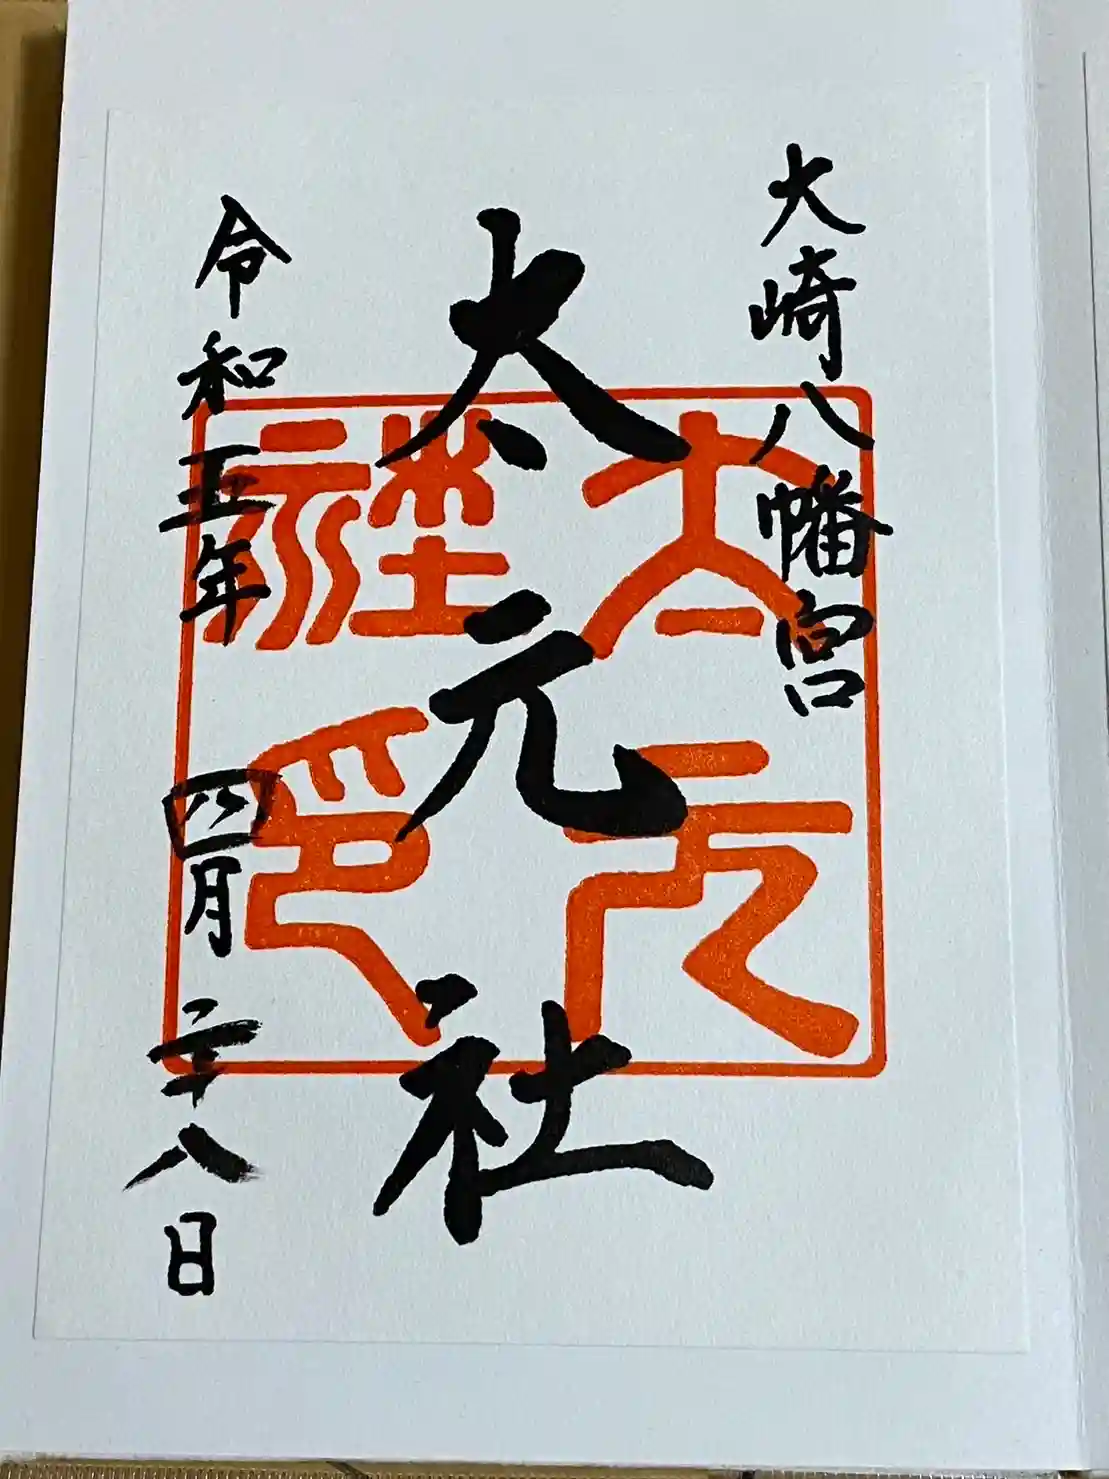 大崎八幡宮
太元社
令和五年 四月二十八日
太元社印